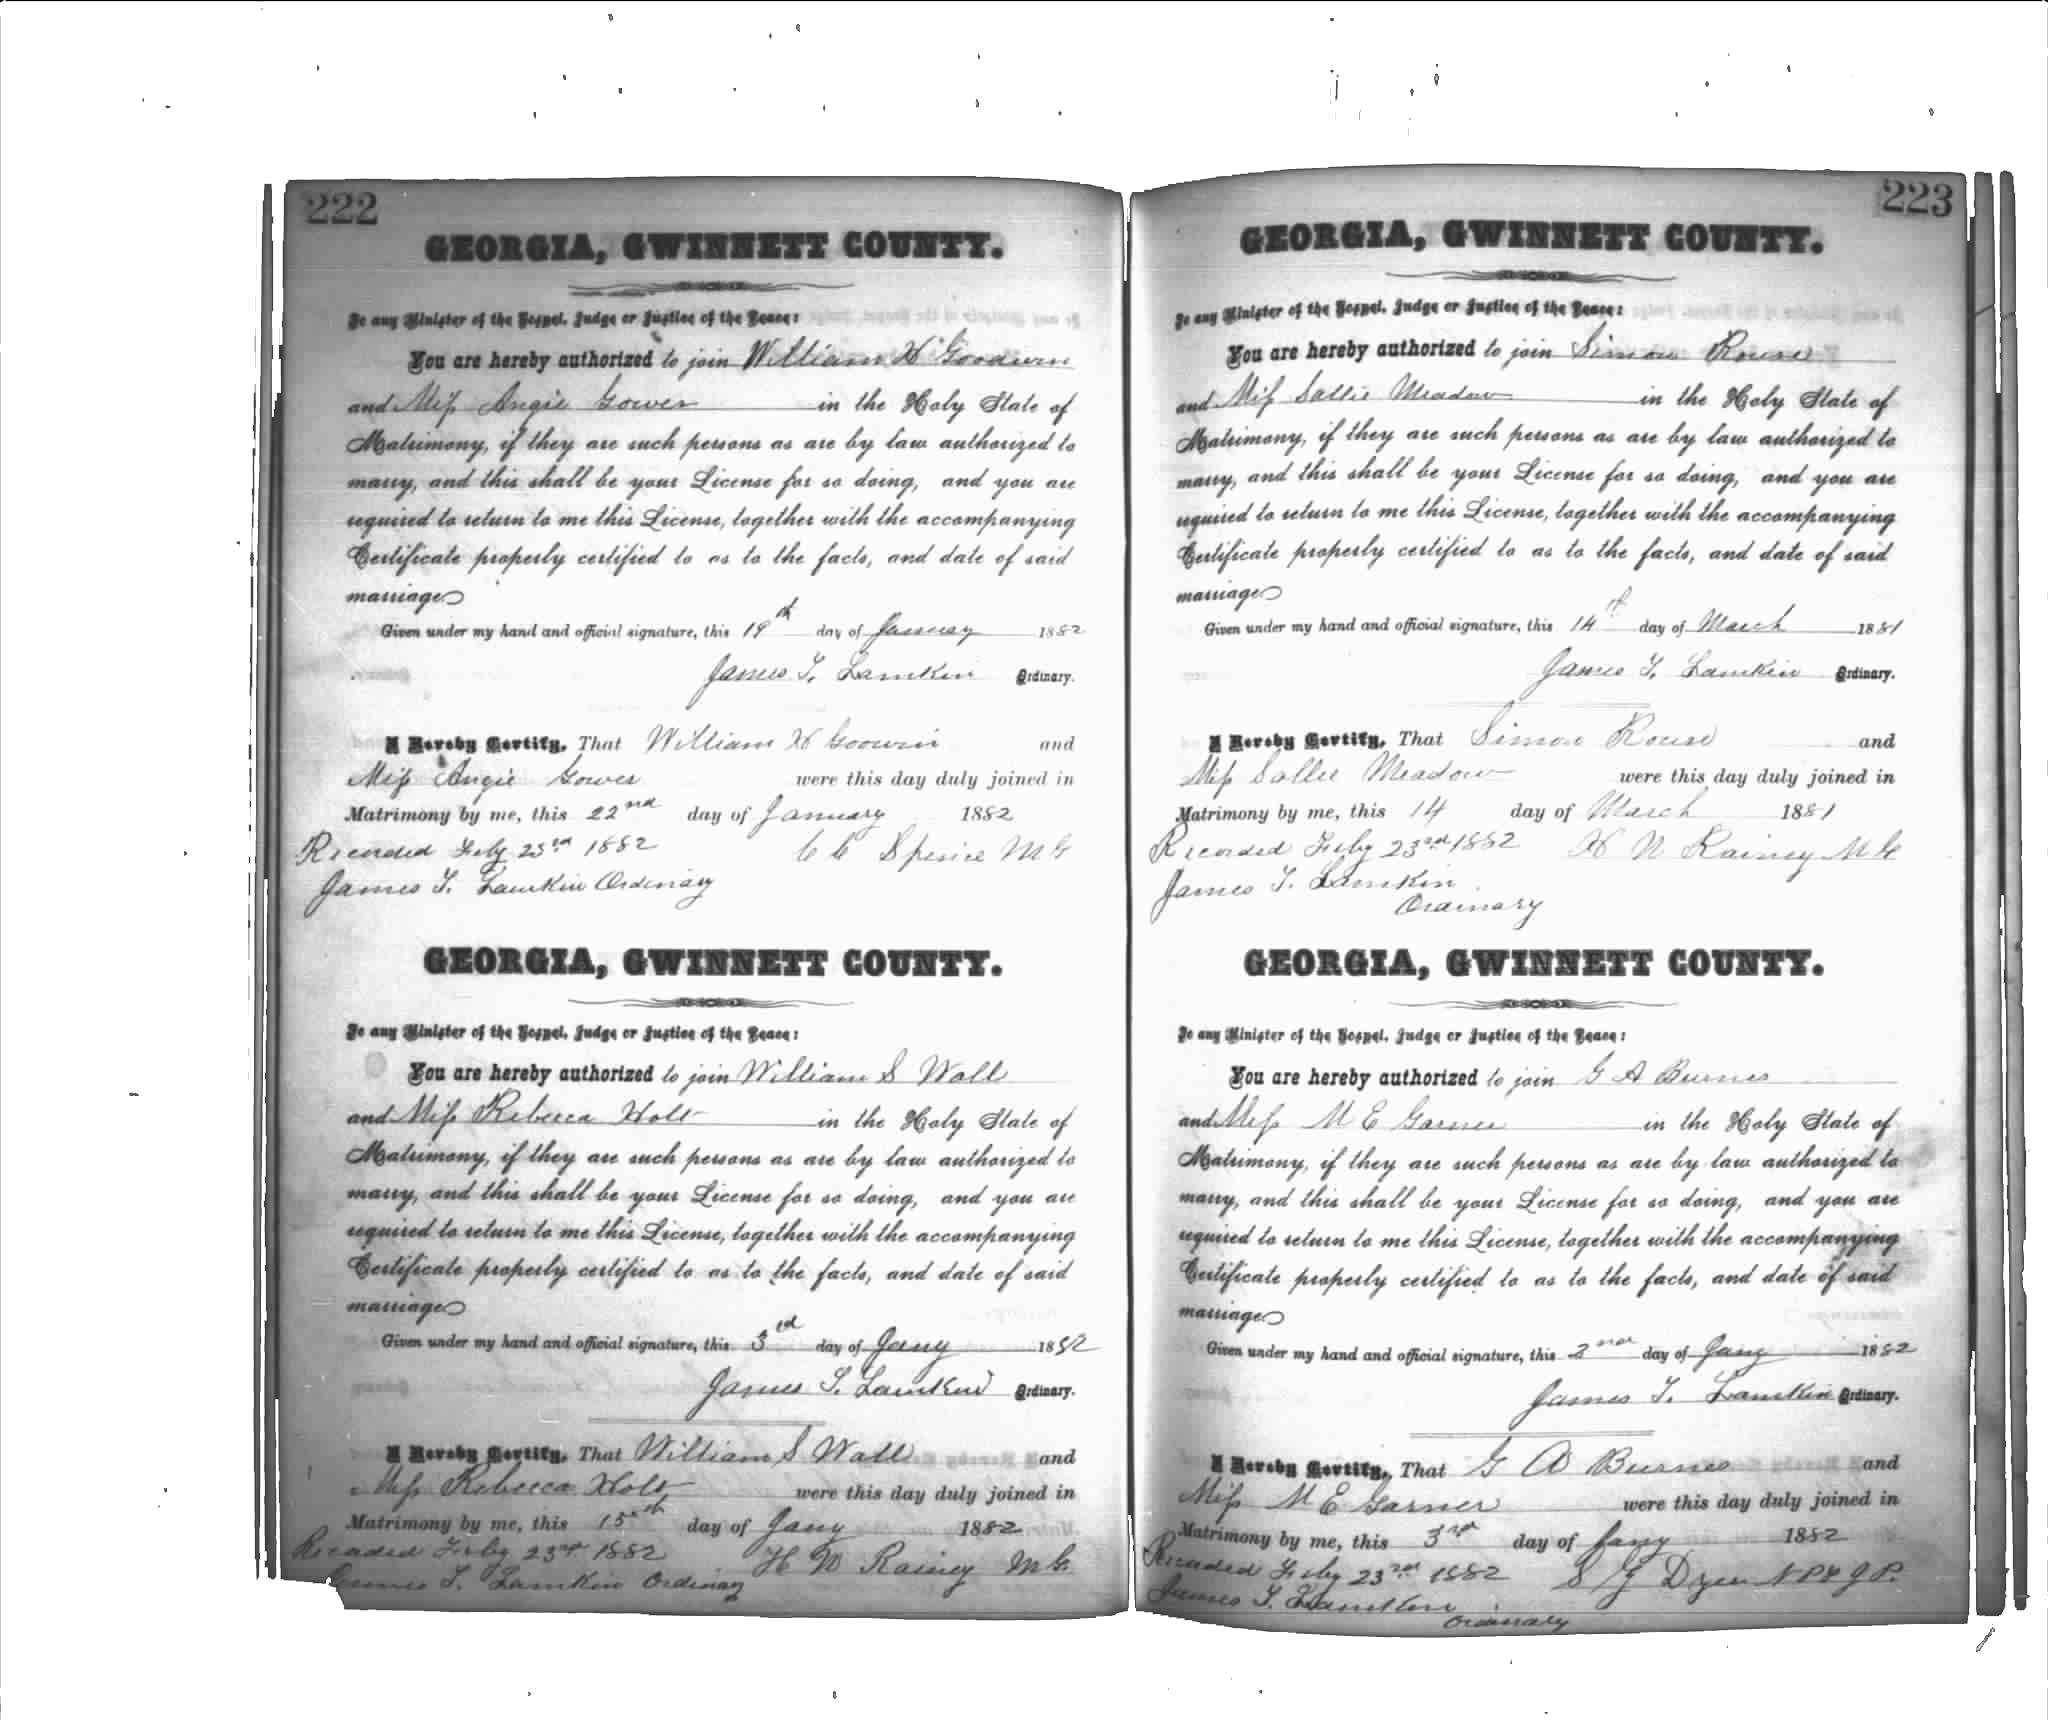 222
GEORGIA, GWINNETT COUNTY.
To any Minister of the Gospel, Judge or Justice of the Peace:
You are hereby authorized to join William H Goodwin
and Miss Angie Gower in the Holy State of
Matrimony, if they are such persons as are by law authorized to
marry, and this shall be your License for so doing, and you are
required to return to me this License, together with the accompanying
Certificate properly certified to as to the facts, and date of said
marriage
Given under my hand and official signature, this 19th day of January 1882
James T. Lamkin Ordinary.
I Hereby Certify, That William H Goowin and
Miss Angie Gower were this day duly joined in
Matrimony by me, this 22nd day of January 1882
Recorded Feby 23rd 1882 Spence M G
James T. Lamkin Ordinary
GEORGIA, GWINNETT COUNTY.
To any Minister of the Gospel, Judge or Justice of the Peace:
You are hereby authorized to join William S Wall
and Miss Rebecca Holt in the Holy State of
Matrimony, if they are such persons as are by law authorized to
marry, and this shall be your License for so doing, and you are
required to return to me this License, together with the accompanying
Certificate properly certified to as to the facts, and date of said
marriage
Given under my hand and official signature, this 3rd day of Jany 1882
James T. Lamkin Ordinary.
I Hereby Certify, That William S Wall and
Miss Rebecca Holt were this day duly joined in
Matrimony by me, this 15th day of Jany 1882
Recorded Feby 23rd 1882 H N Rainey M G
James T. Lamkin Ordinary
223
GEORGIA, GWINNETT COUNTY.
To any Minister of the Gospel, Judge or Justice of the Peace:
You are hereby authorized to join Simon Rouse
and Miss Sallie Meadow in the Holy State of
Matrimony, if they are such persons as are by law authorized to
marry, and this shall be your License for so doing, and you are
required to return to me this License, together with the accompanying
Certificate properly certified to as to the facts, and date of said
marriage
Given under my hand and official signature, this 14th day of March 1881
James T. Lamkin Ordinary.
I Hereby Certify, That Simon Rouse and
Miss Sallie Meadow were this day duly joined in
Matrimony by me, this 14 day of March 1881
Recorded Feby 23rd 1882 H N Rainey M G
James T. Lamkin
Ordinary
GEORGIA, GWINNETT COUNTY.
To any Minister of the Gospel, Judge or Justice of the Peace:
You are hereby authorized to join G A Burnes
and Miss M E Garner in the Holy State of
Matrimony, if they are such persons as are by law authorized to
marry, and this shall be your License for so doing, and you are
required to return to me this License, together with the accompanying
Certificate properly certified to as to the facts, and date of said
marriage
Given under my hand and official signature, this 2nd day of Jany 1882
James T. Lamkin Ordinary.
I Hereby Certify, That G A Burnes and
Miss M E Garner were this day duly joined in
Matrimony by me, this 3rd day of Jany 1882
Recorded Feby 23rd 1882 S G Dyer N P & J P.
James T. Lamkin
Ordinary